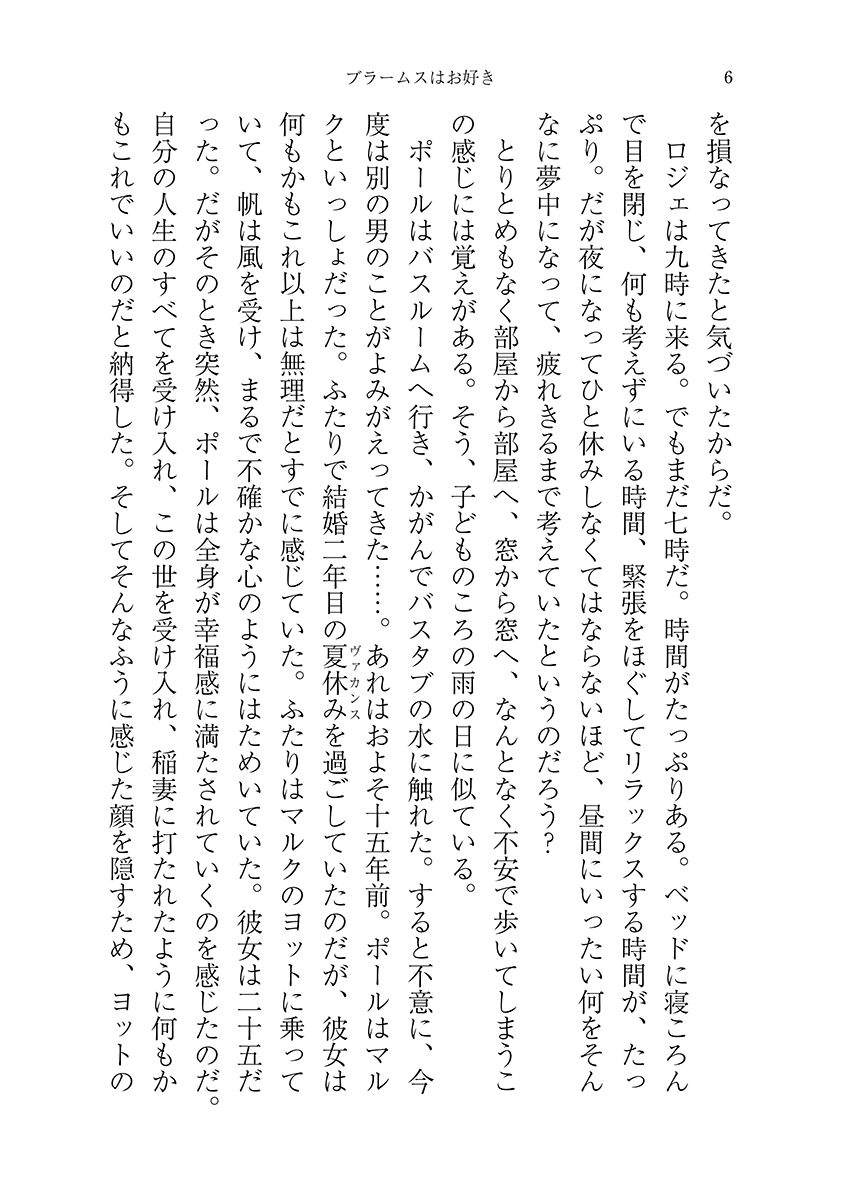 ブラームスはお好き
6
を損なってきたと気づいたからだ。
ロジェは九時に来る。でもまだ七時だ。時間がたっぷりある。ベッドに寝ころん
で目を閉じ、何も考えずにいる時間、緊張をほぐしてリラックスする時間が、たっ
ぷり。だが夜になってひと休みしなくてはならないほど、昼間にいったい何をそん
なに夢中になって、疲れきるまで考えていたというのだろう?
とりとめもなく部屋から部屋へ、窓から窓へ、なんとなく不安で歩いてしまうこ
の感じには覚えがある。そう、子どものころの雨の日に似ている。
ポールはバスルームへ行き、かがんでバスタブの水に触れた。すると不意に、今
度は別の男のことがよみがえってきた……。あれはおよそ十五年前。ポールはマル
クといっしょだった。ふたりで結婚二年目の夏休みを過ごしていたのだが、彼女は
ヴァカンス
何もかもこれ以上は無理だとすでに感じていた。ふたりはマルクのヨットに乗って
いて、帆は風を受け、まるで不確かな心のようにはためいていた。彼女は二十五だ
った。だがそのとき突然、ポールは全身が幸福感に満たされていくのを感じたのだ。
自分の人生のすべてを受け入れ、この世を受け入れ、稲妻に打たれたように何もか
もこれでいいのだと納得した。そしてそんなふうに感じた顔を隠すため、ヨットの